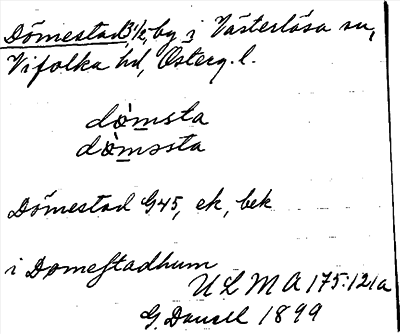 Dömestad 3½, by i Västerlösa sn,
Vifolka hd, Österg. l.
dòmsta
dòməsta
Dömestad G45, ek, bek
i Domestadhum
U L M A 175:121a
G. Danell 1899